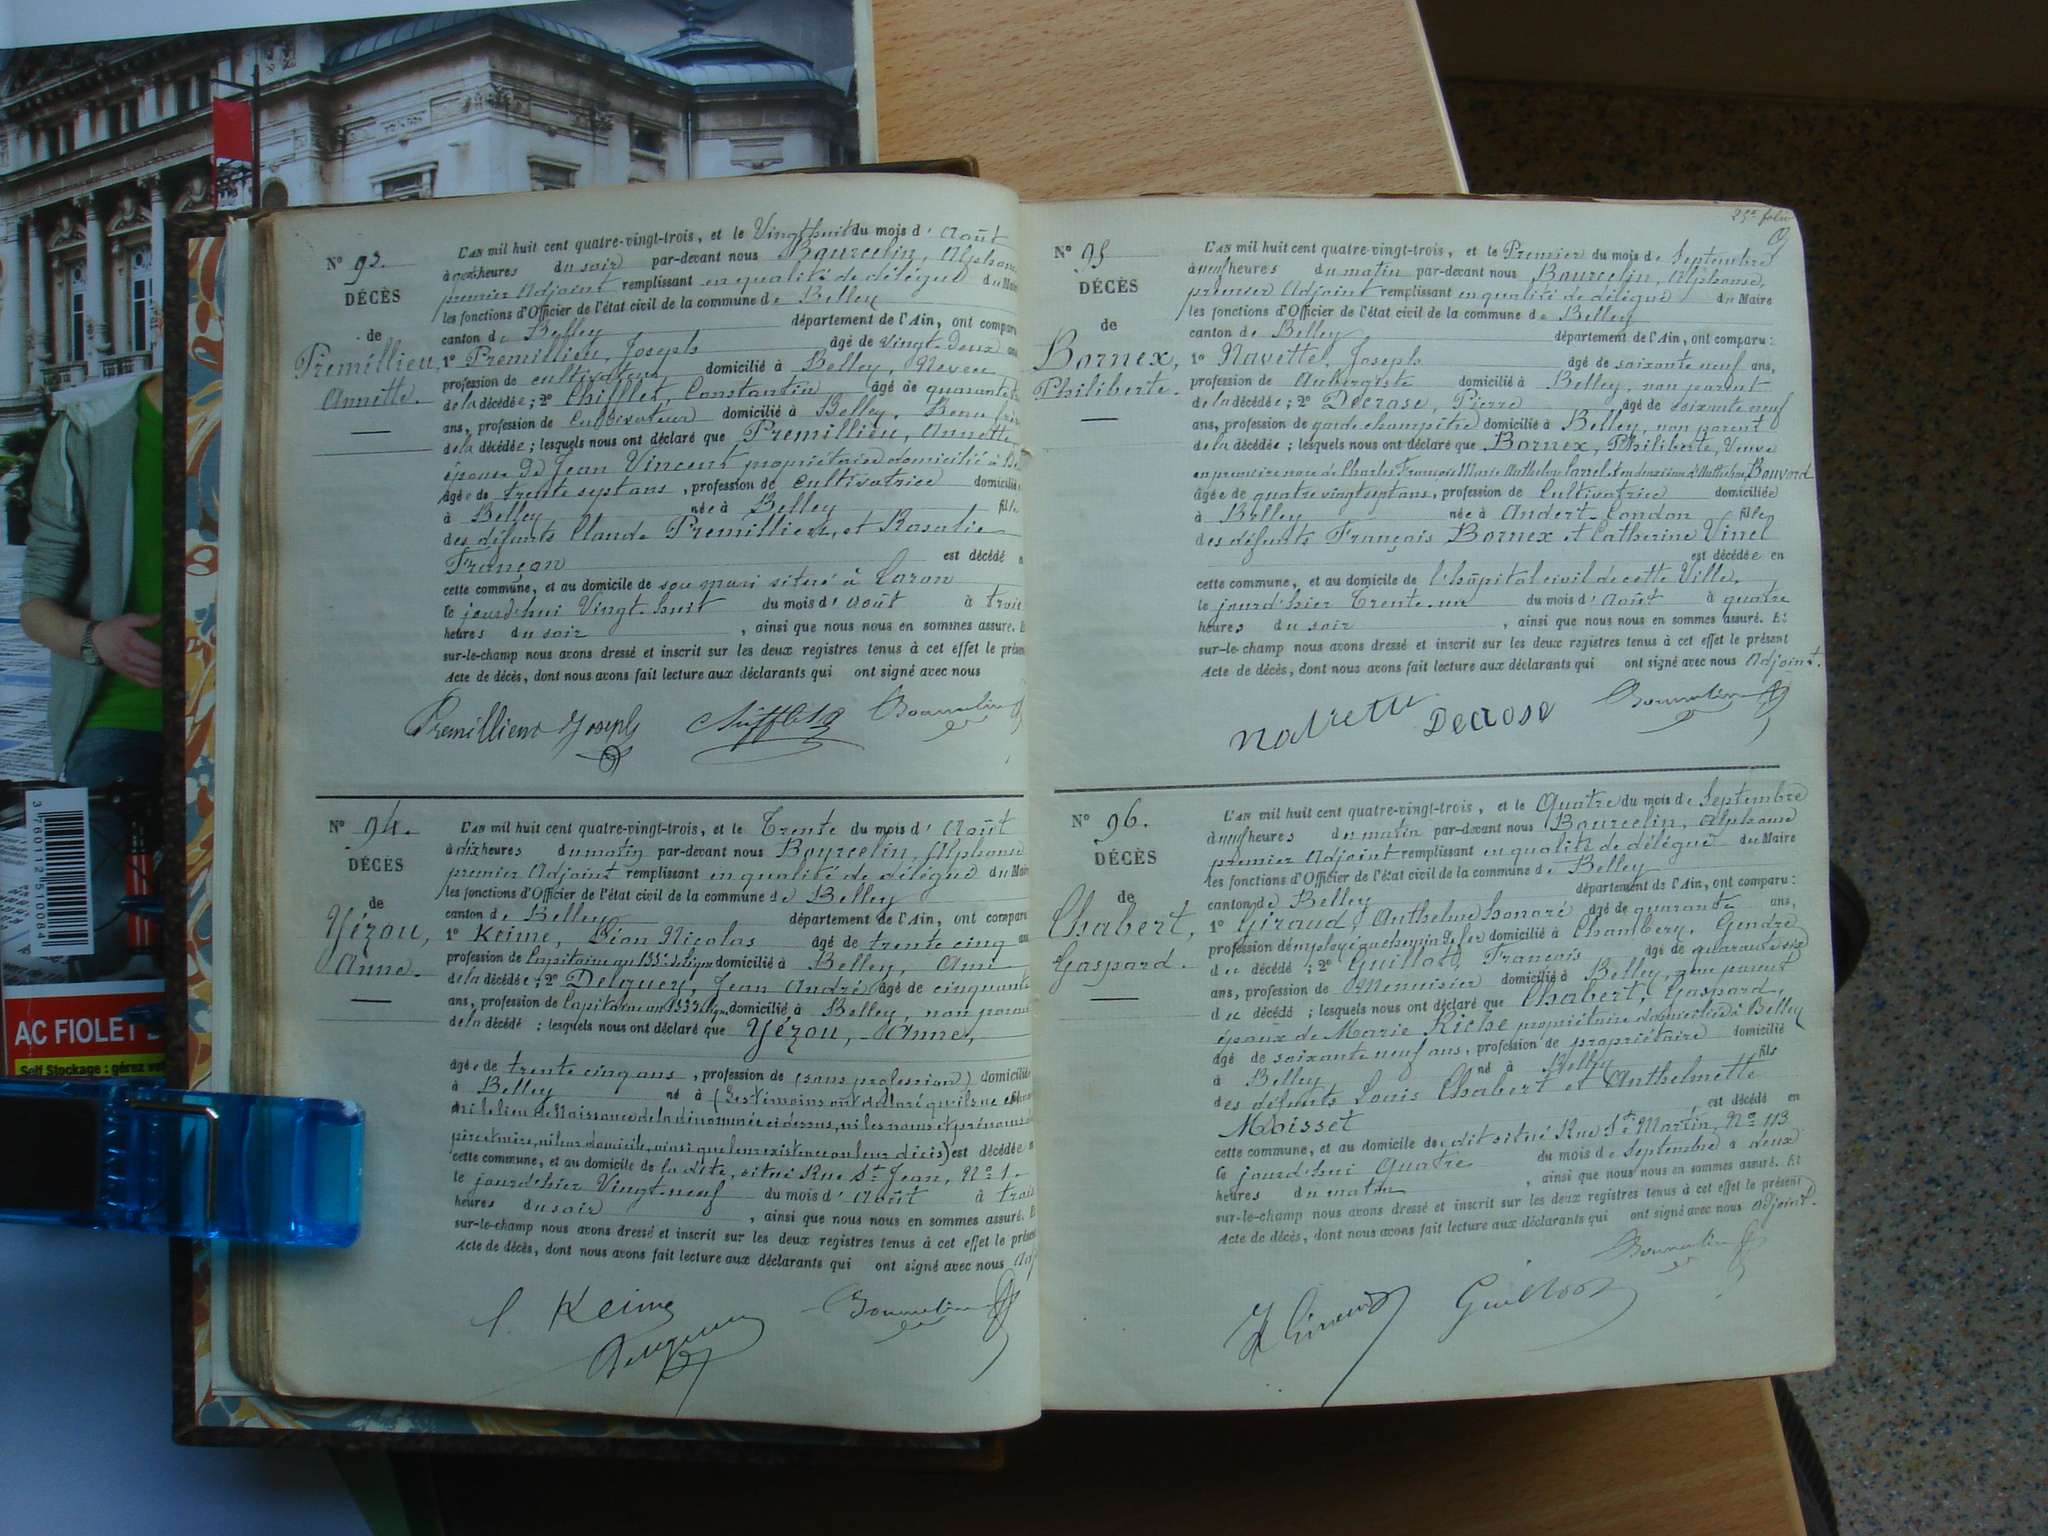 N° 93.
DÉCÈS
de
Premillieu,
Annette.
L'AN mil huit cent quatre-vingt-trois, et le Vingt huit du mois d' Août
heures du soir par-devant nous Bourcelin, Alphonse
premier Adjoint remplissant en qualité de délégué du Maire
les fonctions d'Officier de l'état civil de la commune de Belley
canton de Belley département de l'Ain, ont comparu
1° Premillieu, Joseph âgé de vingt-deux ans
profession de cultivateur domicilié à Belley, Neveu
de la décédée; 2° Chifflet, Constantin âgé de quarante
ans, profession de Cultivateur domicilié à Belley, Beau frère
de la décédée; lesquels nous ont déclaré que Premillieu, Annette
épouse de Jean Vincent propriétaire domicilié à
âgée de trente sept ans, profession de cultivatrice domiciliée
à Belley née à Belley fille
des défunts Claude Premillieu, et Rosalie
Françon est décédé
cette commune, et au domicile de son mari situé à Coron
le jourd'hui Vingt-huit du mois d' Août à trois
heures du soir, ainsi que nous nous en sommes assuré. Et
sur-le-champ nous avons dressé et inscrit sur les deux registres tenus à cet effet le présent
Acte de décès, dont nous avons fait lecture aux déclarants qui ont signé avec nous
Premillieux Joseph Chifflet Bourcelin
N° 94.
DÉCÈS
de
Yézou,
Anne.
L'AN mil huit cent quatre-vingt-trois, et le Trente du mois d' Août
à dix heures du matin par-devant nous Bourcelin, Alphonse
premier Adjoint remplissant en qualité de délégué du Maire
les fonctions d'Officier de l'état civil de la commune de Belley
canton de Belley département de l'Ain, ont comparu
1° Keime, Léon Nicolas âgé de trente cinq ans
profession de Capitaine au 133e de ligne domicilié à Belley, Ami
de la décédée; 2° Delguey, Jean André âgé de cinquante
ans, profession de Capitaine au 133e ligne domicilié à Belley, non parent
de la décédé; lesquels nous ont déclaré que Yézou, Anne,
âgée de trente cinq ans, profession de (sans profession) domiciliée
à Belley né à (Les témoins ont déclaré qu'ils ne
ni le lieu de Naissance de la dénommée ci dessus, ni les noms et prénoms de
père et mère, ni leur domicile, ainsi que leur existence ou leur décès) est décédée
cette commune, et au domicile de la dite, situé Rue St Jean, N° 1.
le jourd'hier Vingt-neuf du mois d' Août à trois
heures du soir, ainsi que nous nous en sommes assuré. Et
sur-le-champ nous avons dressé et inscrit sur les deux registres tenus à cet effet le présent
Acte de décès, dont nous avons fait lecture aux déclarants qui ont signé avec nous Adj
Keime Bourcelin
Delguey
25e folio
N° 95
DÉCÈS
de
Bornex,
Philiberte.
L'AN mil huit cent quatre-vingt-trois, et le Premier du mois de Septembre
à neuf heures du matin par-devant nous Bourcelin, Alphonse,
premier Adjoint remplissant en qualité de délégué du Maire
les fonctions d'Officier de l'état civil de la commune de Belley
canton de Belley département de l'Ain, ont comparu:
1° Navette, Joseph âgé de soixante neuf ans,
profession de Aubergiste domicilié à Belley, non parent
de la décédée; 2° Decrose, Pierre âgé de soixante neuf
ans, profession de garde champêtre domicilié à Belley, non parent
de la décédée; lesquels nous ont déclaré que Bornex, Philiberte, Veuve
en première noce de Charles François Marie Anthelme Carrel et en deuxième d'Anthelme Bouvard
âgée de quatre vingt sept ans, profession de Cultivatrice domiciliée
à Belley née à Andert-Condon fille
des défunts François Bornex et Catherine Vinel
est décédée en
cette commune, et au domicile de l'hôpital civil de cette Ville,
le jourd'hier Trente-un du mois d' Août à quatre
heures du soir, ainsi que nous nous en sommes assuré. Et
sur-le-champ nous avons dressé et inscrit sur les deux registres tenus à cet effet le présent
Acte de décès, dont nous avons fait lecture aux déclarants qui ont signé avec nous Adjoint.
Navette Decrose Bourcelin
N° 96.
DÉCÈS
de
Chabert,
Gaspard.
L'AN mil huit cent quatre-vingt-trois, et le Quatre du mois de Septembre
à neuf heures du matin par-devant nous Bourcelin, Alphonse
premier Adjoint remplissant en qualité de délégué du Maire
les fonctions d'Officier de l'état civil de la commune de Belley
canton de Belley département de l'Ain, ont comparu:
1° Giraud, Anthelme honoré âgé de quarante ans,
profession d'employé au chemin de fer domicilié à Chambéry, Gendre
du décédé; 2° Guillot, François âgé de quarante six
ans, profession de Menuisier domicilié à Belley, non parent
du décédé; lesquels nous ont déclaré que Chabert, Gaspard,
époux de Marie Riche propriétaire domiciliée à Belley
âgé de soixante neuf ans, profession de propriétaire domicilié
à Belley né à Belley fils
des défunts Louis Chabert et Anthelmette
Moisset est décédé en
cette commune, et au domicile de dit situé Rue St Martin, N° 113
le jourd'hui Quatre du mois de septembre à deux
heures du matin, ainsi que nous nous en sommes assuré. Et
sur-le-champ nous avons dressé et inscrit sur les deux registres tenus à cet effet le présent
Acte de décès, dont nous avons fait lecture aux déclarants qui ont signé avec nous adjoint.
Bourcelin
Giraud Guillot
3 760112 510084
AC FIOLET
Self Stockage : gérez